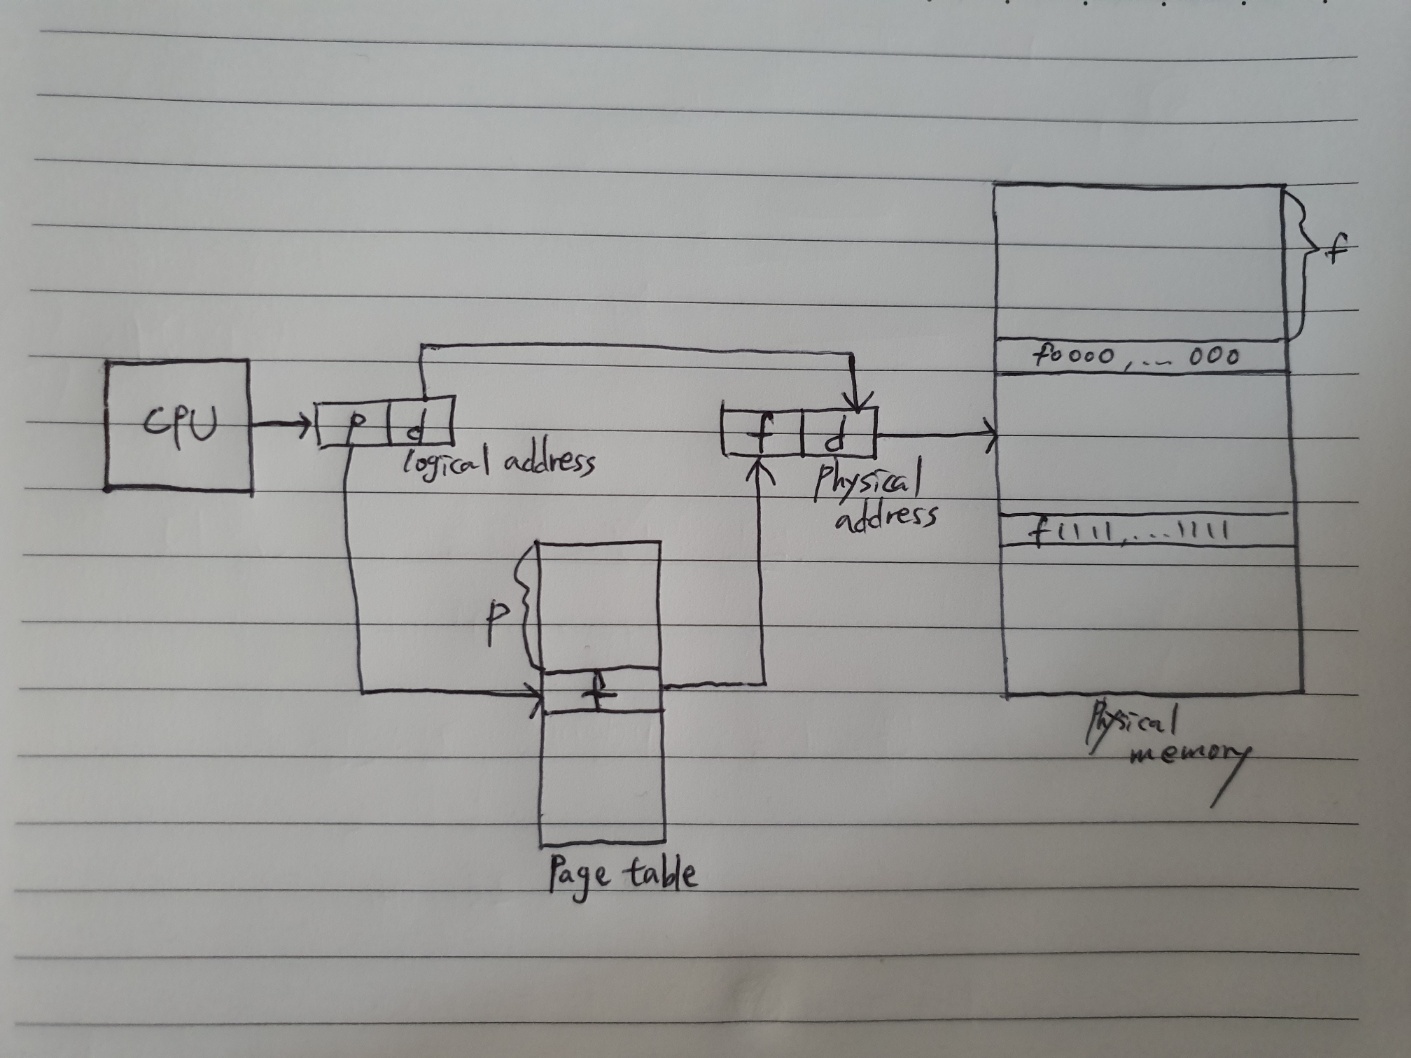 f
f0000,... 000
CPU
p
d
f
d
logical address
Physical
address
f11111,...1111
p
f
Physical
memory
Page table